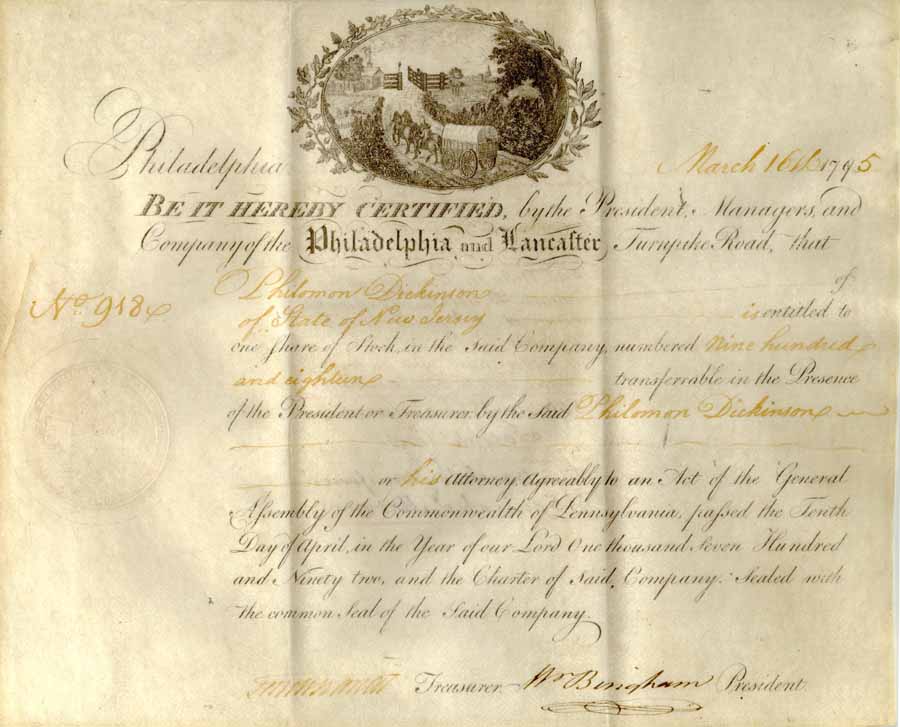 Philadelphia March 16th 1795
BE IT HEREBY CERTIFIED, by the President, Managers, and
Company of the Philadelphia and Lancaster Turnpike Road, that
Philomon Dickinson of
No. 918 of State of New Jersey is entitled to
one share of Stock, in the said Company, numbered Nine hundred
and eighteen transferrable in the Presence
of the President or Treasurer by the said Philomon Dickinson
or his Attorney, Agreeably to an Act of the General
Assembly of the Commonwealth of Pennsylvania, passed the Tenth
Day of April, in the Year of our Lord One thousand Seven Hundred
and Ninety two, and the Charter of Said Company. Sealed with
the common Seal of the Said Company.
Treasurer Wm Bingham President